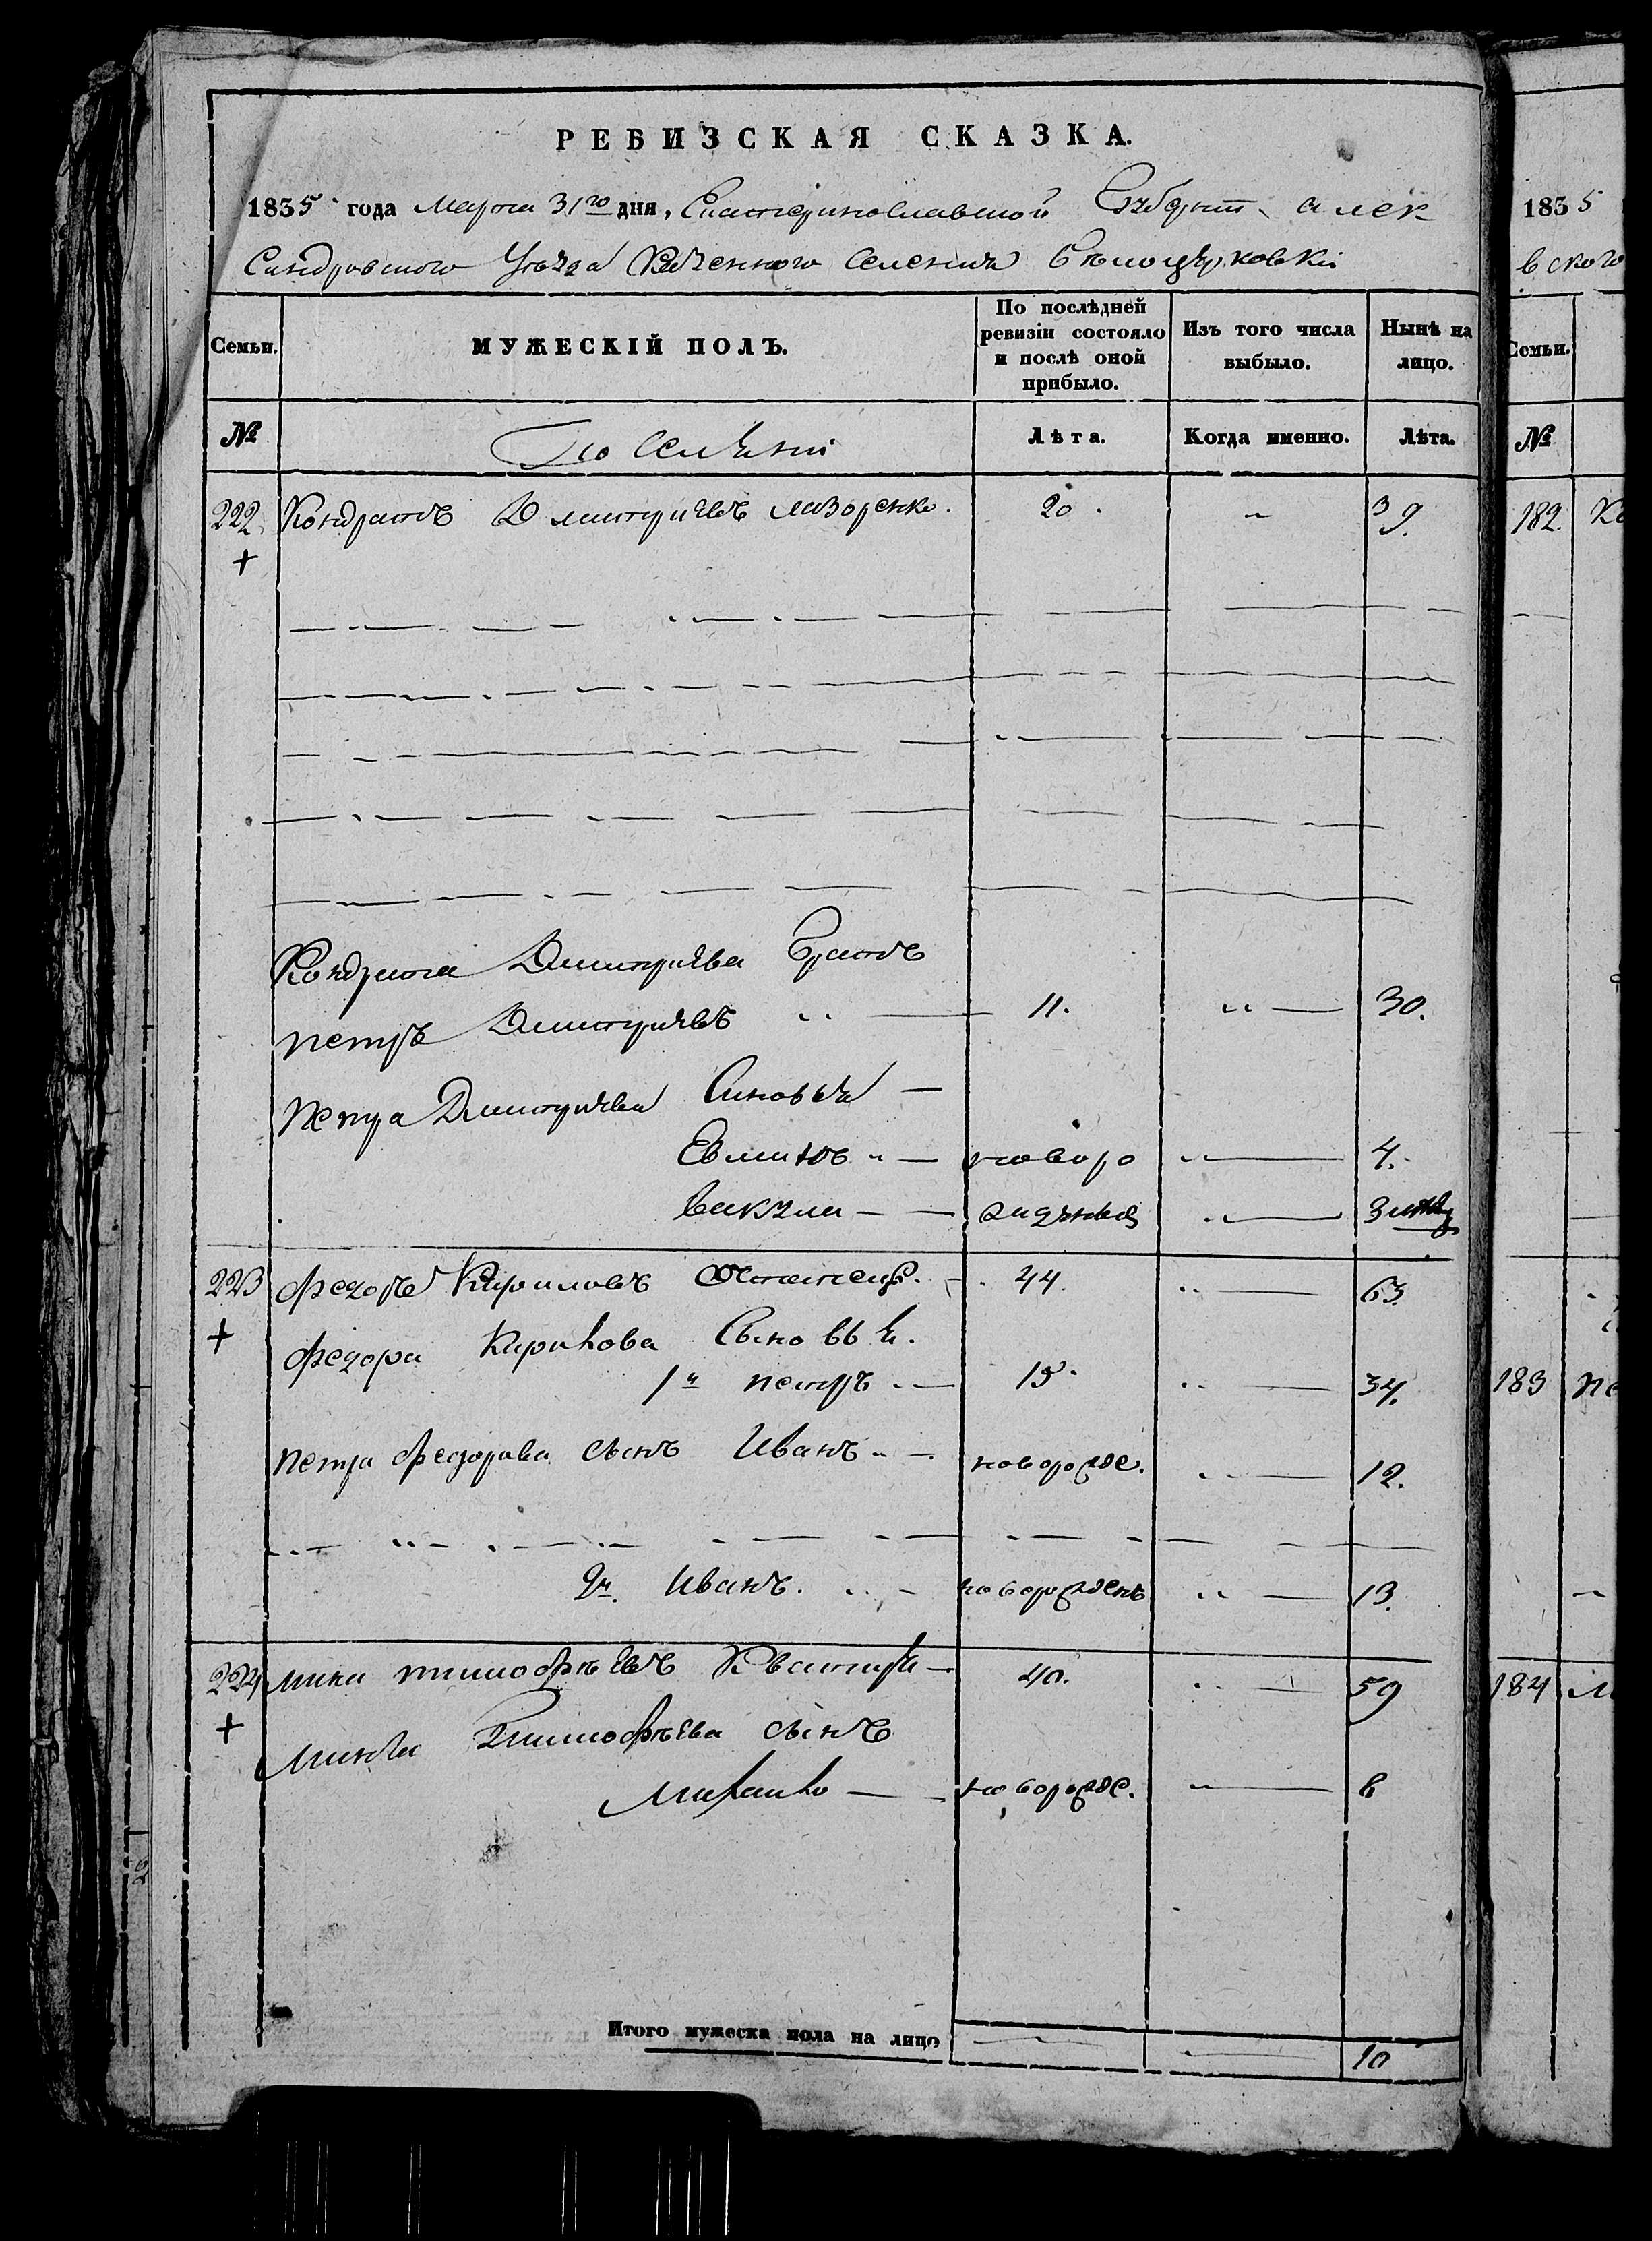 РЕВИЗСКАЯ СКАЗКА.
1835 года Марта 31го дня, Екатеринославской Губерніи алек
сандровского Уезда Казенного Селенія Бѣлоцерковки
Семьи. МУЖЕСКІЙ ПОЛЪ. По послѣдней ревизіи состояло и послѣ оной прибыло. Изъ того числа выбыло. Нынѣ на лицо.
№ Лѣта. Когда именно. Лѣта.
222 Кондратъ Дмитріевъ лазоренко. 20. 39.
Кондрата Дмитріева Братъ
петръ Дмитріевъ 11. 30.
петра Дмитріева Синовья
новоро 4.
Вакула 3
223 Федоръ Кириловъ 44. 63.
Федора Кирилова Сыновья.
1й петръ 15. 34.
петра Федорова сынъ Иванъ новорожде. 12.
2й. Иванъ. новорожденъ 13.
224 мина тимофѣевъ 40. 59
мины Тимофѣева сынъ
Михаило новорожде. 8
Итого мужеска пола на лицо 10
1835
вского
Семьи.
№
182. Ко
183 пе
184 м